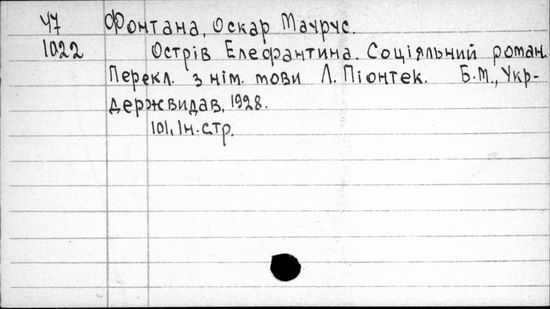 Ч7 Фонтана, Оскар Маурус.
1022 Острів Елефантина. Соціяльний роман.
Перекл. з нім. мови Л. Піонтек. Б.М., Укр-
держвидав, 1928.
101, ІН. стр.